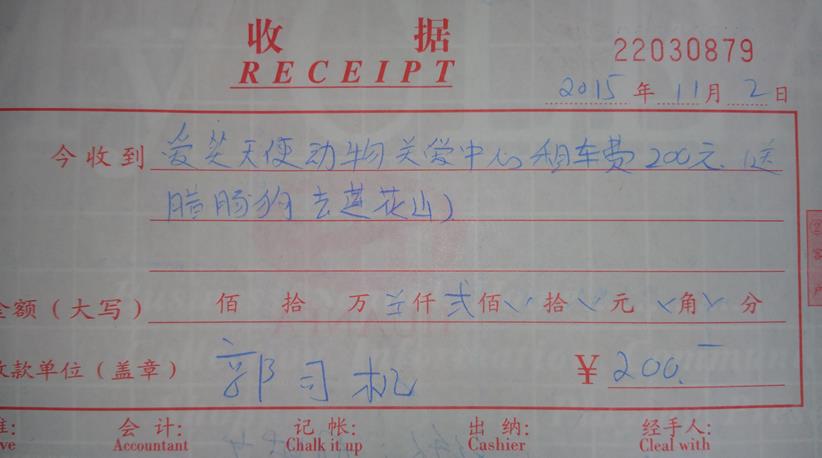 收 据
RECEIPT
22030879
2015 年 11 月 2 日
今收到 爱笑天使动物关爱中心租车费200元.(送
腊肠狗去莲花山)
金额(大写) 佰 拾 万 仟 贰 佰 拾 元 角 分
收款单位(盖章) 郭司机 ¥ 200.—
准: 会 计: 记 帐: 出 纳: 经手人:
ve Accountant Chalk it up Cashier Cleal with